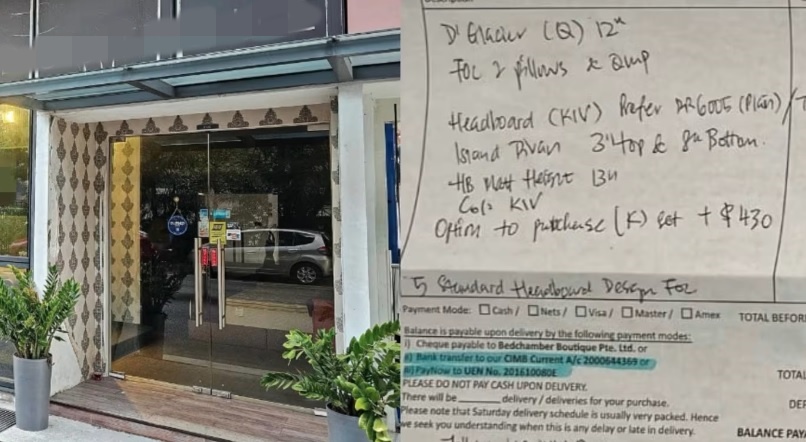 D'Glacier (Q) 12"
FOC 2 pillows & QMP
Headboard (KIV) Prefer DR6005 (Plan) /
Island Divan 3" top & 8" Bottom.
HB Matt Height 13"
Col: KIV
Option to purchase (K) set + $430
Standard Headboard Design For
Payment Mode: Cash / Nets / Visa / Master / Amex TOTAL BEFOR
Balance is payable upon delivery by the following payment modes:
i) Cheque payable to Bedchamber Boutique Pte. Ltd. or
ii) Bank transfer to our CIMB Current A/c 2000644369 or
iii) PayNow to UEN No. 201610080E
PLEASE DO NOT PAY CASH UPON DELIVERY. TOTAL
There will be delivery / deliveries for your purchase. DEP
Please note that Saturday delivery schedule is usually very packed. Hence
we seek you understanding when this is any delay or late in delivery. BALANCE PAY